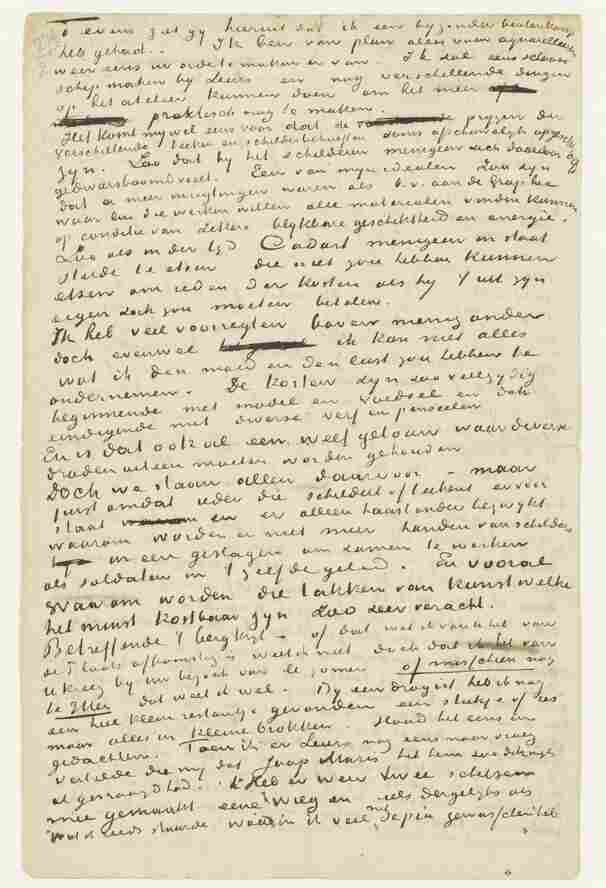 evens ziet gy hieruit dat ik een byzonder buitenkansje
heb gehad. Ik ben van plan alles van aquarelleeren
weer eens in orde te maken er van. Ik zal eens schoon
schip maken by Leurs en nog verschillende dingen
op het atelier kunnen doen om het meer
praktisch nog te maken.
Het komt my wel eens voor dat de pryzen der
verschillende teeken en schildersbehoeften soms afschuwelyk opgeschroefd
zyn. Zoo dat by het schilderen menigeen zich daardoor
gedwarsboomd voelt. Een van myn idealen zou zyn
dat er meer inrigtingen waren als b.v. aan de Graphic
waar lui die werken willen alle materialen vinden kunnen
op conditie van zekere blykbare geschiktheid en energie.
Zoo als in der tyd Cadart menigeen in staat
stelde te etsen die niet zou hebben kunnen
etsen om reden der kosten als hy 't uit zyn
eigen zak zou moeten betalen.
Ik heb veel voorregten boven menig ander
doch evenwel ik kan niet alles
wat ik den moed en den lust zou hebben te
ondernemen. De kosten zyn zoo veelzydig
beginnende met model en voedsel en dak
eindigende met diverse verf en penseelen
En is dat ook al een weef getouw waar diverse
draden uiteen moeten worden gehouden
Doch we staan allen daarvoor – maar
juist omdat ieder die schildert of teekent ervoor
staat en er alleen haast onder bezwykt
waarom worden er niet meer handen van schilders
in een geslagen om samen te werken
als soldaten in 't zelfde gelid. En vooral
waarom worden die takken van kunst welke
het minst kostbaar zyn zoo zeer veracht.
Betreffende 't berg kryt – of dat wat ik van U heb van
de Plaats afkomstig is weet ik niet doch dat ik het van
U kreeg by uw bezoek van de zomer of misschien nog
te Etten dat weet ik wel. By een drogist heb ik nog
een heel klein restantje gevonden een stukje of zes
maar alles in kleine brokken. Houd het eens in
gedachten. Toen ik er Leurs nog eens naar vroeg
vertelde die my dat Jaap Maris het hem eve dikwyls
al gevraagd had. Ik heb er weer twee schetsen
mee gemaakt eene wieg en iets dergelyks als
wat ik reeds stuurde waarin ik veel met sepia gewasschen heb